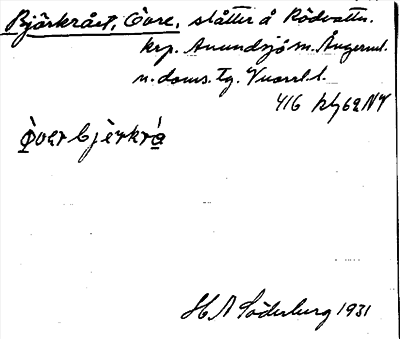 Björkrået, Övre, slåtter å Rödvattn.
krp. Anundsjö sn. Ångerml.
n. doms. tg.
416 kbg 62 NV
òverbjèrkrå̀
H A Söderberg 1931